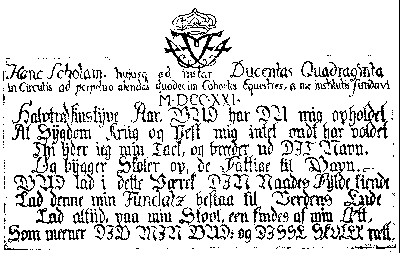 Hanc Scholam. hujusq ad instar Ducentas Quadraginta
in Circulis ad perpetuo alendas duodecim Cohortes Equestres, a me institutis fundavi
M·DCC·XXI·
Halvtredsinstyve Aar, GUD har DU mig opholdet,
At Sygdom Krig og Pest mig intet ondt har voldet
Thi yder jeg min Tack, og breeder ud DIT Navn.
Og bygger Skoler op, de Fattige til Gavn.
GUD lad i dette Værck DIN Naades Fylde kiende
Lad denne min Fundatz bestaa til Verdens Ende
Lad altid, paa min Stool, een findes af min Æt,
Som meener DIG MIN GUD: og DISSE SKOLER rætt.